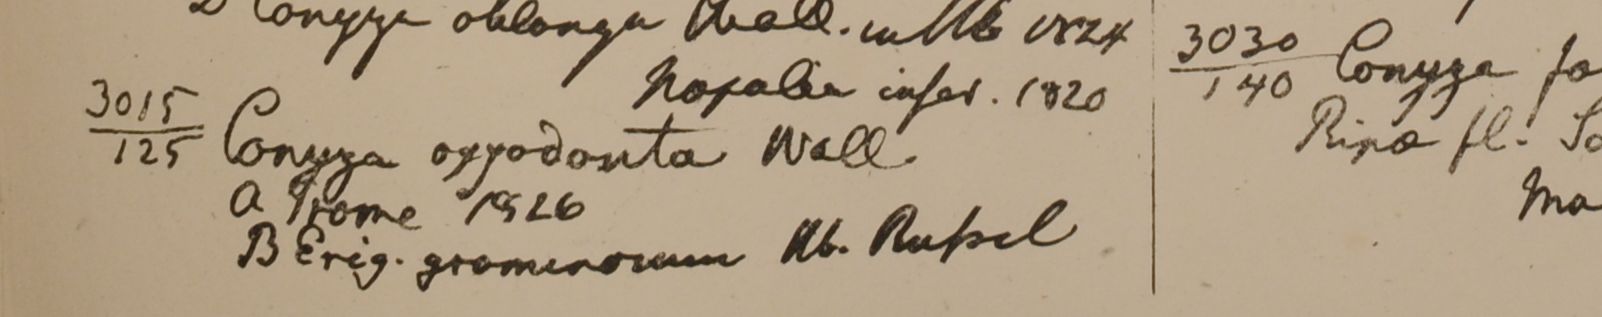 D Conyza oblonga Wall. in Hb 1824
Napalia infer. 1820
3015
125 Conyza oxyodonta Wall
a Prome 1826
B Erig. graminorum Hb. Russel
3030
140 Conyza fo
Ripa fl. Sa
Ma